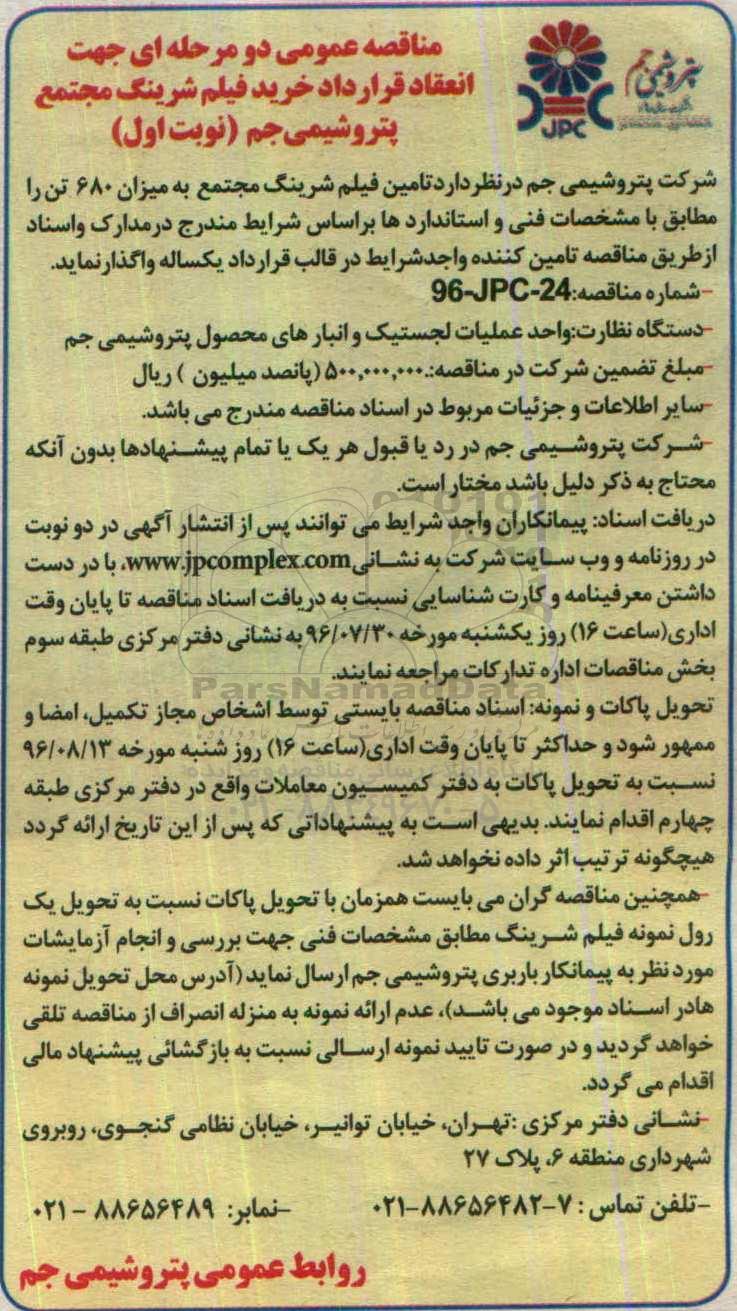 پتروشیمی جم
JPC
مناقصه عمومی دو مرحله ای جهت
انعقاد قرارداد خرید فیلم شرینگ مجتمع
پتروشیمی‌جم (نوبت اول)
شرکت پتروشیمی جم درنظرداردتامین فیلم شرینگ مجتمع به میزان ۶۸۰ تن را
مطابق با مشخصات فنی و استاندارد ها براساس شرایط مندرج درمدارک واسناد
ازطریق مناقصه تامین کننده واجدشرایط در قالب قرارداد یکساله واگذارنماید.
-شماره مناقصه:96-JPC-24
-دستگاه نظارت:واحد عملیات لجستیک و انبار های محصول پتروشیمی جم
-مبلغ تضمین شرکت در مناقصه:۵۰۰,۰۰۰,۰۰۰ (پانصد میلیون ) ریال
-سایر اطلاعات و جزئیات مربوط در اسناد مناقصه مندرج می باشد.
-شرکت پتروشیمی جم در رد یا قبول هر یک یا تمام پیشنهادها بدون آنکه
محتاج به ذکر دلیل باشد مختار است.
دریافت اسناد: پیمانکاران واجد شرایط می توانند پس از انتشار آگهی در دو نوبت
در روزنامه و وب سایت شرکت به نشانیwww.jpcomplex.com، با در دست
داشتن معرفینامه و کارت شناسایی نسبت به دریافت اسناد مناقصه تا پایان وقت
اداری(ساعت ۱۶) روز یکشنبه مورخه ۹۶/۰۷/۳۰ به نشانی دفتر مرکزی طبقه سوم
بخش مناقصات اداره تدارکات مراجعه نمایند.
ParsNamadData
تحویل پاکات و نمونه: اسناد مناقصه بایستی توسط اشخاص مجاز تکمیل، امضا و
ممهور شود و حداکثر تا پایان وقت اداری(ساعت ۱۶) روز شنبه مورخه ۹۶/۰۸/۱۳
نسبت به تحویل پاکات به دفتر کمیسیون معاملات واقع در دفتر مرکزی طبقه
چهارم اقدام نمایند. بدیهی است به پیشنهاداتی که پس از این تاریخ ارائه گردد
هیچگونه ترتیب اثر داده نخواهد شد.
-همچنین مناقصه گران می بایست همزمان با تحویل پاکات نسبت به تحویل یک
رول نمونه فیلم شرینگ مطابق مشخصات فنی جهت بررسی و انجام آزمایشات
مورد نظر به پیمانکار باربری پتروشیمی جم ارسال نماید (آدرس محل تحویل نمونه
هادر اسناد موجود می باشد)، عدم ارائه نمونه به منزله انصراف از مناقصه تلقی
خواهد گردید و در صورت تایید نمونه ارسالی نسبت به بازگشائی پیشنهاد مالی
اقدام می گردد.
-نشانی دفتر مرکزی :تهران، خیابان توانیر، خیابان نظامی گنجوی، روبروی
شهرداری منطقه ۶، پلاک ۲۷
-تلفن تماس : ۷-۸۸۶۵۶۴۸۲-۰۲۱ -نمابر: ۸۸۶۵۶۴۸۹ - ۰۲۱
روابط عمومی پتروشیمی جم